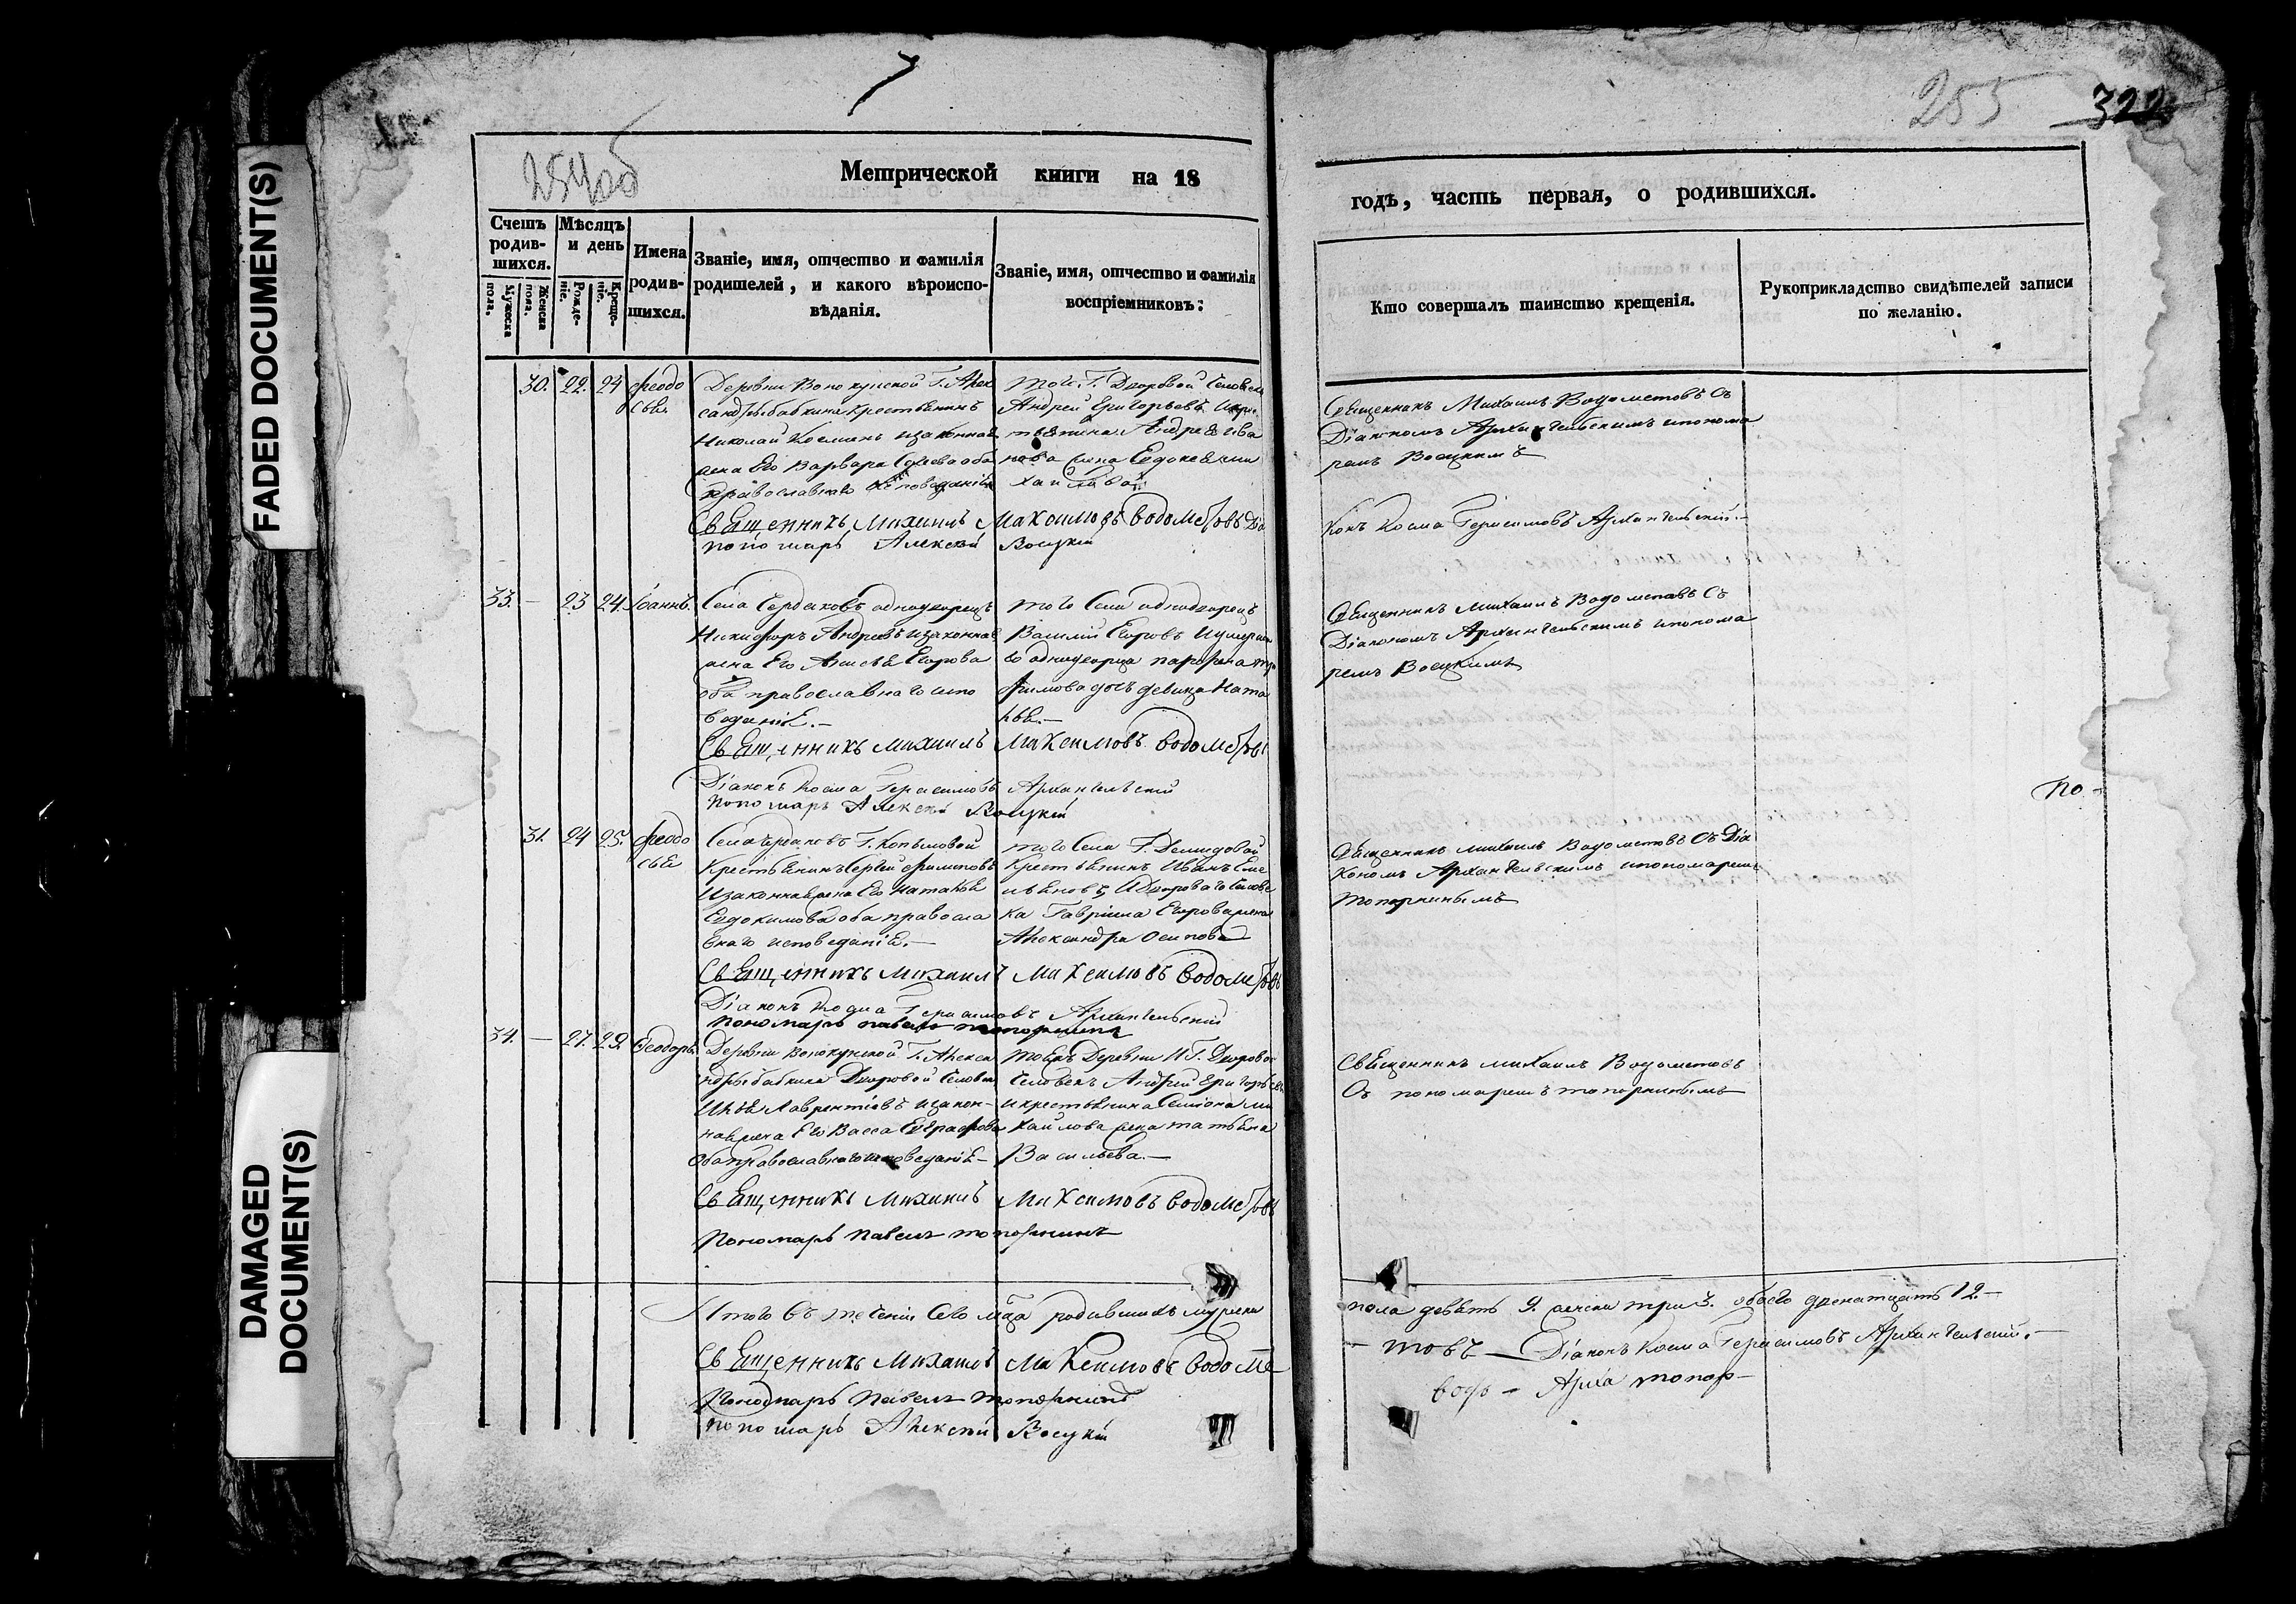 FADED DOCUMENT(S)
DAMAGED
DOCUMENT(S)
254об
255
322
Метрической книги на 18
годъ, часть первая, о родившихся.
Счетъ родив-шихся.
Мужеска пола.
Женска пола.
Мѣсяцъ и день
Рожде-ніе.
Креще-ніе.
Имена родив-шихся.
Званіе, имя, отчество и фамилія
родителей, и какого вѣроиспо-
вѣданія.
Званіе, имя, отчество и фамилія
воспріемниковъ:
Кто совершалъ таинство крещенія.
Рукоприкладство свидѣтелей записи
по желанію.
30. 22. 24 феодо
сья
Деревни Г. Алек
сандры бабкина крестьянинъ
Николай изаконная
жена Его Варвара оба
православнаго
того Г. Дворовой Человекъ
Андрей Григорьевъ
Андрея Ива
нова жена Евдокея ми
хайлова
Священникъ Михаилъ Водометовъ Съ
Діакономъ Архангельскимъ ипонома
ремъ
Священникъ Михаилъ Максимовъ Водометовъ Діа
конъ Косма Герасимовъ Архангельскій.-
пономарь Алексей
33. - 23 24. Іоаннъ.
Села однодворецъ
Никифоръ Андреевъ изаконная
жена Его Егорова
оба православнаго испо
веданіЕ.-
того Села однодворецъ
Василій Егоровъ Иумерша
го однодворца
фимова дочь девица Ната
лья.-
Священникъ Михаилъ Водометовъ Съ
Діакономъ Архангельскимъ ипонома
ремъ
Священникъ Михаилъ Максимовъ Водометовъ
Діаконъ Косма Герасимовъ Архангельскій
пономарь Алексей
По-
31. 24 25. феодо
сья
Села Г. Копыловой
КрестьЯнинъ Сергей Филиповъ
Изаконная жена Его Наталья
Евдокимова оба правосла
внаго исповеданіЕ.-
того Села Г. Демидовой
КрестьЯнинъ Иванъ Еме
льяновъ, Идвороваго Челове
ка Гавріила Егорова жена
Александра Осипова
Священникъ Михаилъ Водометовъ Съ Діа
кономъ Архангельскимъ ипономаремъ
топорнинымъ
Священникъ Михаилъ Максимовъ Водометовъ
Діаконъ Косма Герасимовъ Архангельскій
Пономарь павелъ топорнинъ
34. - 27. 29. Феодоръ.
Деревни Г. Алекса
ндры бабкина Дворовой Человекъ
Илья Лаврентіевъ изакон-
ная жена Его Васса Евграфова
Оба православнаго исповеданіЕ-
тоЕжъ Деревни И Г. Дворовой
Человекъ Андрей Григорьевъ
икрестьЯнина Семіона ми
хайлова жена татьЯна
Васильева.-
Священникъ Михаилъ Водометовъ
Съ пономаремъ топорнинымъ
Священникъ Михаилъ Максимовъ Водометовъ
Пономарь Павелъ топорнинъ
Итого въ теченіи Сего мца родившихъ мужеска
пола девять 9. женска три 3. обоего двенатцать 12-
Священникъ Михаилъ Максимовъ Водоме
- товъ - Діаконъ Косма Герасимовъ Архангельскій.-
Пономарь Павелъ топорнинъ
пономарь Алексей